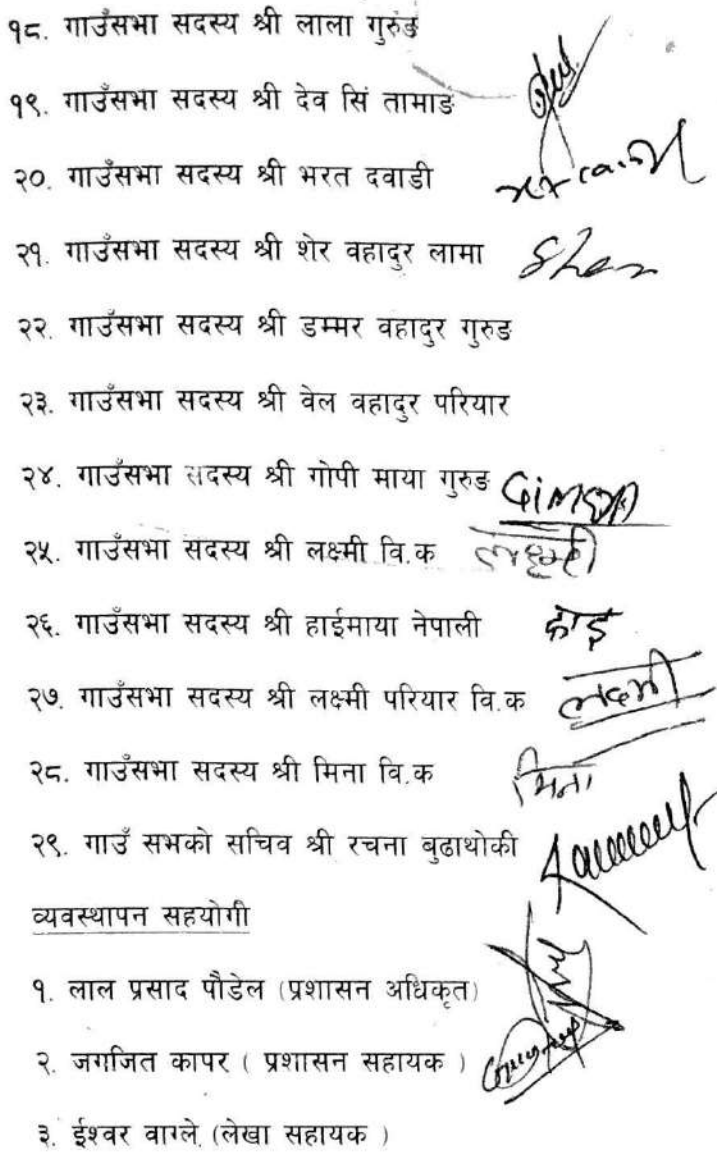 १८. गाउँसभा सदस्य श्री लाला गुरुङ
१९. गाउँसभा सदस्य श्री देव सिं तामाङ
२०. गाउँसभा सदस्य श्री भरत दवाडी
२१. गाउँसभा सदस्य श्री शेर वहादुर लामा Sher
२२. गाउँसभा सदस्य श्री डम्मर वहादुर गुरुङ
२३. गाउँसभा सदस्य श्री वेल वहादुर परियार
२४. गाउँसभा सदस्य श्री गोपी माया गुरुङ
२५. गाउँसभा सदस्य श्री लक्ष्मी वि.क लक्ष्मी
२६. गाउँसभा सदस्य श्री हाईमाया नेपाली
२७. गाउँसभा सदस्य श्री लक्ष्मी परियार वि.क
२८. गाउँसभा सदस्य श्री मिना वि.क मिना
२९. गाउँ सभको सचिव श्री रचना बुढाथोकी
व्यवस्थापन सहयोगी
१. लाल प्रसाद पौडेल (प्रशासन अधिकृत)
२. जगजित कापर ( प्रशासन सहायक )
३. ईश्वर वाग्ले (लेखा सहायक )